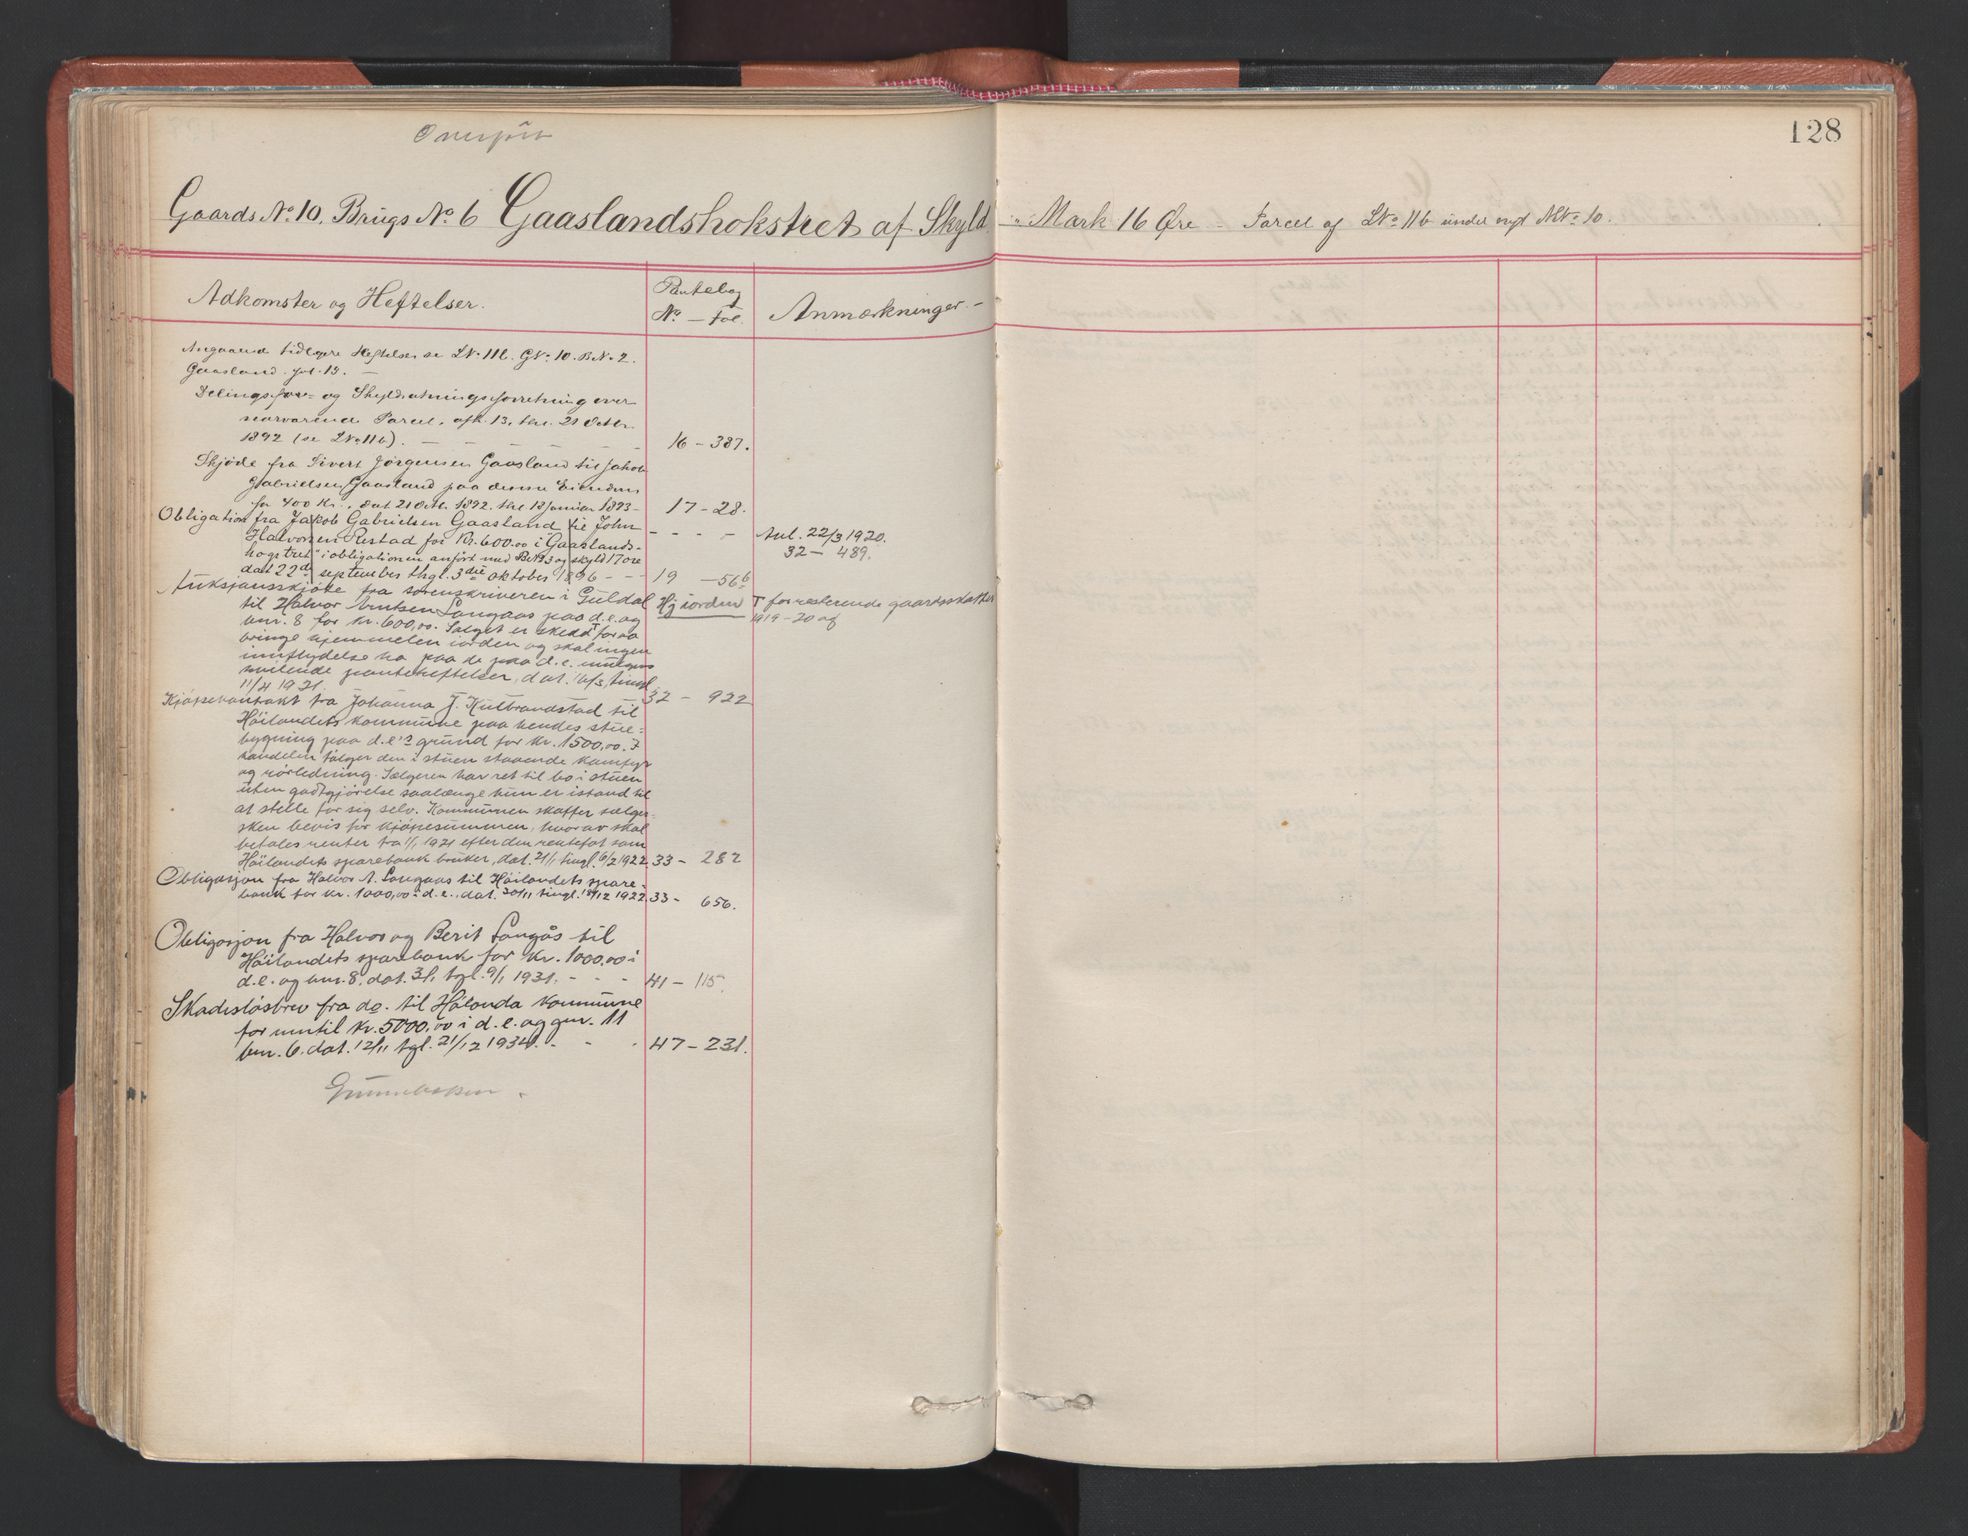 128
Overført
Gaards No. 10, Brugs No. 6 Gaaslandshokstret af Skyld " Mark 16 Øre - Parcel af LNo 11b under nyt MNo 10.
Adkomster og Heftelser.
Pantebog
No. — Fol.
Anmærkninger. —
Angaaende tidligere Heftelser se LNo. 11b. GNo. 10. BNo. 2.
Gaasland. fol. 13. —
Delingsfor- og Skyldsætningsforretning over
nærværende Parcel, afh. 13, thl. 21 Octbr.
1892 (se LNo 11b). — — — 16 - 387.
Skjøde fra Sivert Jørgensen Gaasland til Jakob
Gabrielsen Gaasland paa denne Eiendom
for 400 Kr., dat 21 Octb. 1892, thl 13 Januar 1893 - 17 - 28.
Obligation fra Jakob Gabrielsen Gaasland til John
Halvorsen Restad for Kr. 600.00 i "Gaaslands- - - - - Avl. 22/3 1920.
høgstret" i obligationen anført med BNo 3 og skyld 17 øre 32 — 489.
dat 22de september thgl. 3die oktober 1896 - - - 19 — 56b
Auksjonsskjøte fra sorenskriveren i Guldal Hj iorden T for resterende gaardsskatter
til Halvor Arntsen Langaas paa d.e. og 1919-20 af
bnr. 8 for kr. 600,00. Salget er skedd T for aa
bringe hjemmelen iorden og skal ingen
innflydelse ha paa de paa d.e. muligens
hvilende panteheftelser, dat. 16/3, tingl.
11/4 1921. 32 - 922
Kjøpekontrakt fra Johanna J. Kulbrandstad til
Høilandets kommune paa hendes stue-
bygning paa d.e's grund for kr. 1500,00. I
handelen følger den i stuen staaende komfyr
og rørledning. Sælgeren har ret til bo i stuen
uten godtgjørelse saalænge hun er istand til
at stelle for sig selv. Kommunen skaffer sælger-
sken bevis for kjøpesummen, hvorav skal
betales renter fra 1/1 1921 efter den rentefot som
Høilandets sparebank bruker, dat. 21/1 tingl. 6/2 1922. 33 - 282
Obligasjon fra Halvor A. Langaas til Høilandets spare-
bank for kr. 1000,00 i d.e., dat. 30/11 tingl. 18/12 1922. 33 - 656.
Obligasjon fra Halvor og Berit Langås til
Høilandets sparebank for kr. 1000,00 i
d.e. og bnr. 8, dat. 3/1, tgl. 9/1 1931. - - - 41 - 115.
Skadesløsbrev fra do. til Hølonda kommune
for inntil kr. 5000,00 i d.e. og gnr. 11
bnr. 6. dat. 12/11 tgl. 21/12 1934. - - - 47 - 231.